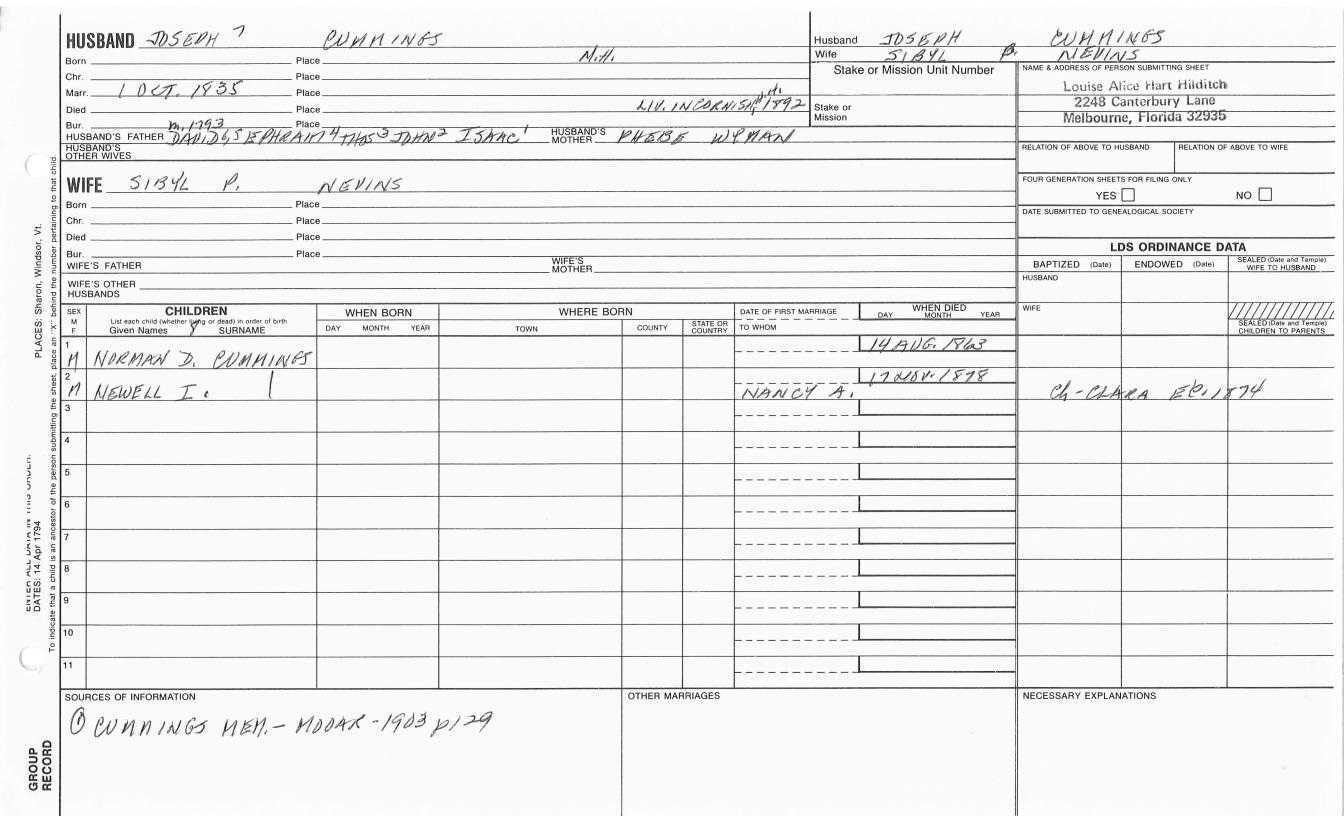 HUSBAND JOSEPH 7 CUMMINGS
Born Place N.H.
Chr. Place
Marr. 1 OCT. 1835 Place
Died Place LIV. IN CORNISH, N.H. 1892
Bur. Place
m. 1793
HUSBAND'S FATHER DAVID6,5 EPHRAIM4 THOS3 JOHN2 ISAAC1 HUSBAND'S MOTHER PHEBE WYMAN
HUSBAND'S OTHER WIVES
Husband JOSEPH CUMMINGS
Wife SIBYL P. NEVINS
Stake or Mission Unit Number
Stake or Mission
NAME & ADDRESS OF PERSON SUBMITTING SHEET
Louise Alice Hart Hilditch
2248 Canterbury Lane
Melbourne, Florida 32935
RELATION OF ABOVE TO HUSBAND RELATION OF ABOVE TO WIFE
FOUR GENERATION SHEETS FOR FILING ONLY
YES NO
DATE SUBMITTED TO GENEALOGICAL SOCIETY
WIFE SIBYL P. NEVINS
Born Place
Chr. Place
Died Place
Bur. Place
WIFE'S FATHER WIFE'S MOTHER
WIFE'S OTHER HUSBANDS
LDS ORDINANCE DATA
BAPTIZED (Date) ENDOWED (Date) SEALED (Date and Temple) WIFE TO HUSBAND
HUSBAND
WIFE
SEALED (Date and Temple) CHILDREN TO PARENTS
SEX M F
CHILDREN
List each child (whether living or dead) in order of birth
Given Names SURNAME
WHEN BORN
DAY MONTH YEAR
WHERE BORN
TOWN COUNTY STATE OR COUNTRY
DATE OF FIRST MARRIAGE
TO WHOM
WHEN DIED
DAY MONTH YEAR
1 M NORMAN D. CUMMINGS 14 AUG. 1863
2 M NEWELL I. NANCY A. 17 NOV. 1878 Ch-CLARA E 1874
3
4
5
6
7
8
9
10
11
SOURCES OF INFORMATION
① CUMMINGS MEM. - MOOAR - 1903 p129
OTHER MARRIAGES
NECESSARY EXPLANATIONS
PLACES: Sharon, Windsor, Vt.
ENTER ALL DATA IN THIS ORDER:
DATES: 14 Apr 1794
To indicate that a child is an ancestor of the person submitting the sheet, place an "X" behind the number pertaining to that child.
GROUP RECORD